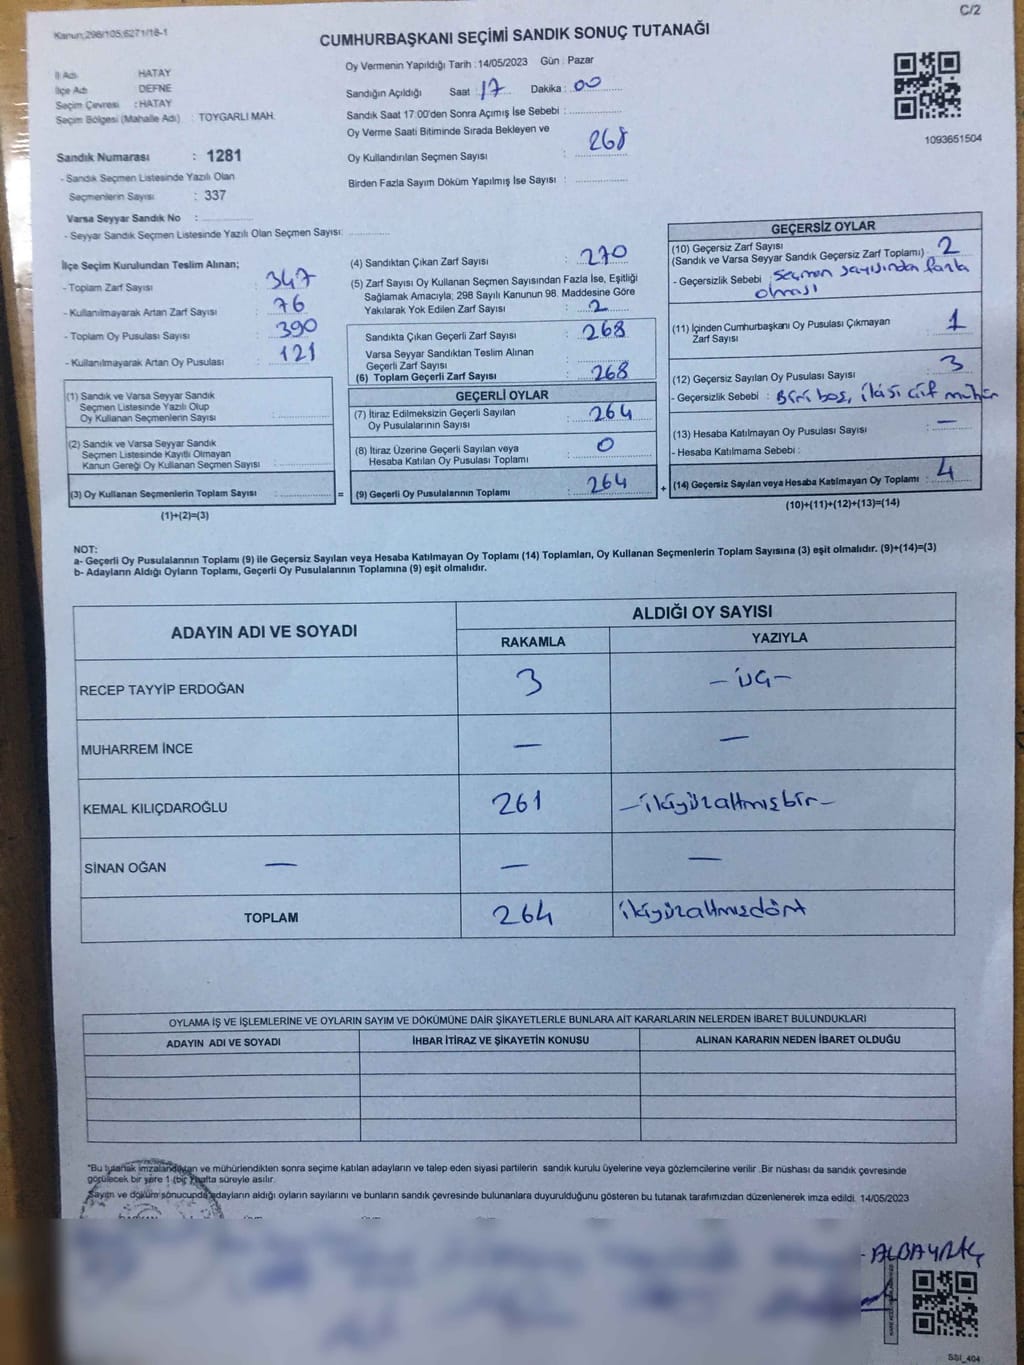 C/2
Kanun;298/105;6271/18-1
CUMHURBAŞKANI SEÇİMİ SANDIK SONUÇ TUTANAĞI
İl Adı HATAY
İlçe Adı DEFNE
Seçim Çevresi : HATAY
Seçim Bölgesi (Mahalle Adı) : TOYGARLI MAH.
Sandık Numarası : 1281
- Sandık Seçmen Listesinde Yazılı Olan
Seçmenlerin Sayısı : 337
Varsa Seyyar Sandık No :
- Seyyar Sandık Seçmen Listesinde Yazılı Olan Seçmen Sayısı:
Oy Vermenin Yapıldığı Tarih : 14/05/2023 Gün : Pazar
Sandığın Açıldığı Saat : 17 Dakika : 00
Sandık Saat 17:00'den Sonra Açımış İse Sebebi :
Oy Verme Saati Bitiminde Sırada Bekleyen ve
Oy Kullandırılan Seçmen Sayısı : 268
Birden Fazla Sayım Döküm Yapılmış İse Sayısı :
1093651504
İlçe Seçim Kurulundan Teslim Alınan;
- Toplam Zarf Sayısı : 347
- Kullanılmayarak Artan Zarf Sayısı : 76
- Toplam Oy Pusulası Sayısı : 390
- Kullanılmayarak Artan Oy Pusulası : 121
(1) Sandık ve Varsa Seyyar Sandık
Seçmen Listesinde Yazılı Olup
Oy Kullanan Seçmenlerin Sayısı :
(2) Sandık ve Varsa Seyyar Sandık
Seçmen Listesinde Kayıtlı Olmayan
Kanun Gereği Oy Kullanan Seçmen Sayısı :
(3) Oy Kullanan Seçmenlerin Toplam Sayısı :
(1)+(2)=(3)
=
(4) Sandıktan Çıkan Zarf Sayısı : 270
(5) Zarf Sayısı Oy Kullanan Seçmen Sayısından Fazla İse, Eşitliği
Sağlamak Amacıyla; 298 Sayılı Kanunun 98. Maddesine Göre
Yakılarak Yok Edilen Zarf Sayısı : 2
Sandıkta Çıkan Geçerli Zarf Sayısı : 268
Varsa Seyyar Sandıktan Teslim Alınan
Geçerli Zarf Sayısı :
(6) Toplam Geçerli Zarf Sayısı : 268
GEÇERLİ OYLAR
(7) İtiraz Edilmeksizin Geçerli Sayılan
Oy Pusulalarının Sayısı : 264
(8) İtiraz Üzerine Geçerli Sayılan veya
Hesaba Katılan Oy Pusulası Toplamı : 0
(9) Geçerli Oy Pusulalarının Toplamı : 264
+
GEÇERSİZ OYLAR
(10) Geçersiz Zarf Sayısı
(Sandık ve Varsa Seyyar Sandık Geçersiz Zarf Toplamı) : 2
- Geçersizlik Sebebi : Seçmen sayısından fazla
olması
(11) İçinden Cumhurbaşkanı Oy Pusulası Çıkmayan
Zarf Sayısı : 1
(12) Geçersiz Sayılan Oy Pusulası Sayısı : 3
- Geçersizlik Sebebi : Biri boş, ikisi çift mühür
(13) Hesaba Katılmayan Oy Pusulası Sayısı : —
- Hesaba Katılmama Sebebi :
(14) Geçersiz Sayılan veya Hesaba Katılmayan Oy Toplamı : 4
(10)+(11)+(12)+(13)=(14)
NOT:
a- Geçerli Oy Pusulalarının Toplamı (9) ile Geçersiz Sayılan veya Hesaba Katılmayan Oy Toplamı (14) Toplamları, Oy Kullanan Seçmenlerin Toplam Sayısına (3) eşit olmalıdır. (9)+(14)=(3)
b- Adayların Aldığı Oyların Toplamı, Geçerli Oy Pusulalarının Toplamına (9) eşit olmalıdır.
ADAYIN ADI VE SOYADI
ALDIĞI OY SAYISI
RAKAMLA YAZIYLA
RECEP TAYYİP ERDOĞAN 3 -üç-
MUHARREM İNCE — —
KEMAL KILIÇDAROĞLU 261 -ikiyüzaltmışbir-
SİNAN OĞAN — — —
TOPLAM 264 ikiyüzaltmışdört
OYLAMA İŞ VE İŞLEMLERİNE VE OYLARIN SAYIM VE DÖKÜMÜNE DAİR ŞİKAYETLERLE BUNLARA AİT KARARLARIN NELERDEN İBARET BULUNDUKLARI
ADAYIN ADI VE SOYADI İHBAR İTİRAZ VE ŞİKAYETİN KONUSU ALINAN KARARIN NEDEN İBARET OLDUĞU
*Bu tutanak imzalandıktan ve mühürlendikten sonra seçime katılan adayların ve talep eden siyasi partilerin sandık kurulu üyelerine veya gözlemcilerine verilir .Bir nüshası da sandık çevresinde
görülecek bir yere 1 (bir) hafta süreyle asılır.
Sayım ve döküm sonucunda adayların aldığı oyların sayılarını ve bunların sandık çevresinde bulunanlara duyurulduğunu gösteren bu tutanak tarafımızdan düzenlenerek imza edildi. 14/05/2023
ALBAYRAK
SSI_404